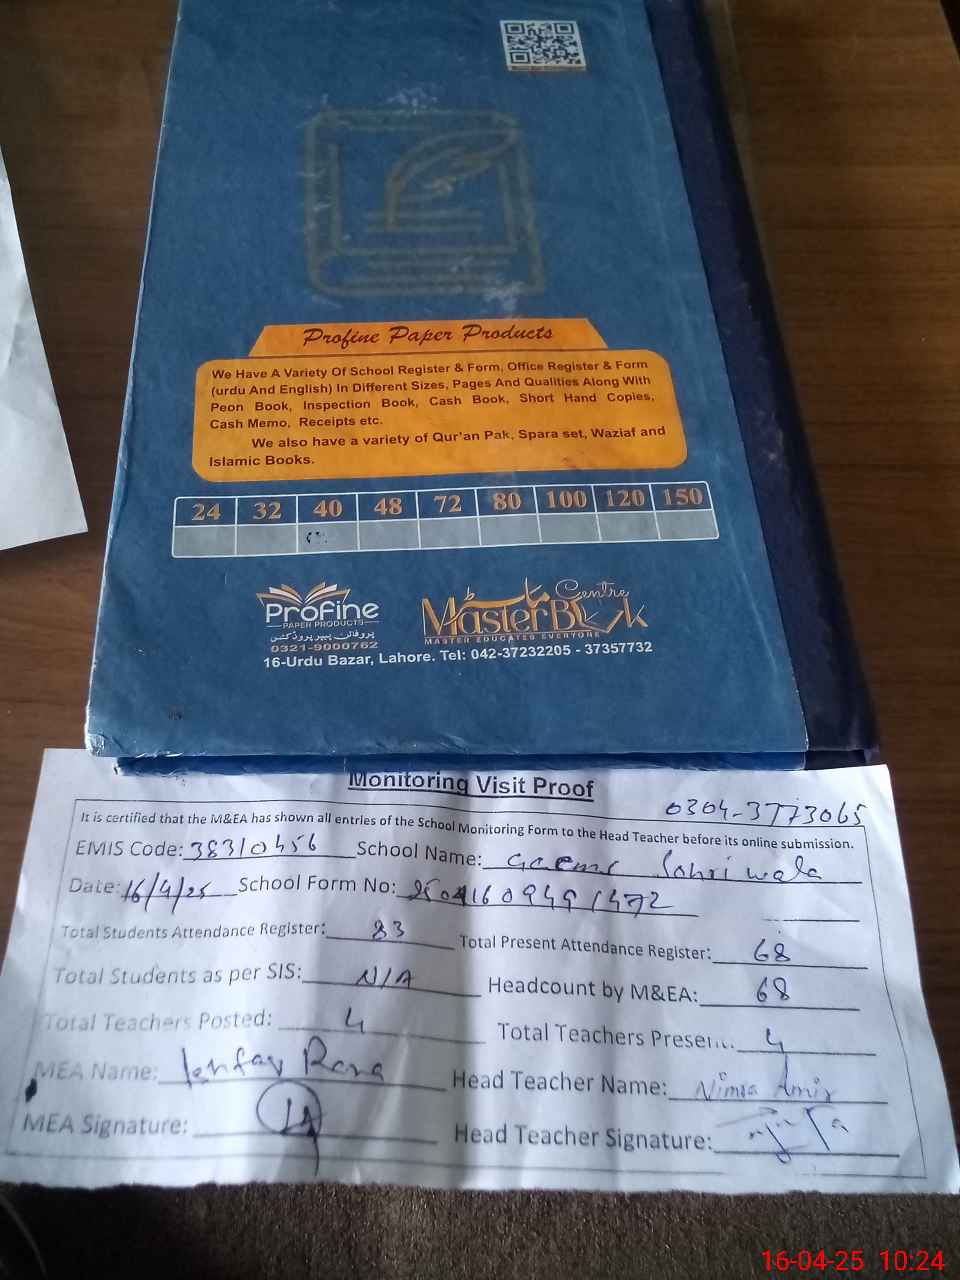 Profine Paper Products
We Have A Variety Of School Register & Form, Office Register & Form
(urdu And English) In Different Sizes, Pages And Qualities Along With
Peon Book, Inspection Book, Cash Book, Short Hand Copies,
Cash Memo, Receipts etc.
We also have a variety of Qur'an Pak, Spara set, Waziaf and
Islamic Books.
24 32 40 48 72 80 100 120 150
Profine
PAPER PRODUCTS
پروفائن پیپر پروڈکٹس
0321-9000762
ماسٹر Master Book Centre
MASTER EDUCATES EVERYONE
16-Urdu Bazar, Lahore. Tel: 042-37232205 - 37357732
Monitoring Visit Proof
0304-3773065
It is certified that the M&EA has shown all entries of the School Monitoring Form to the Head Teacher before its online submission.
EMIS Code: 38310456 School Name: Sohriwala
Date: 16/4/25 School Form No:
Total Students Attendance Register: 83 Total Present Attendance Register: 68
Total Students as per SIS: N/A Headcount by M&EA: 68
Total Teachers Posted: 4 Total Teachers Present: 4
MEA Name: Rana Head Teacher Name: Nimra Amir
MEA Signature: Head Teacher Signature:
16-04-25 10:24